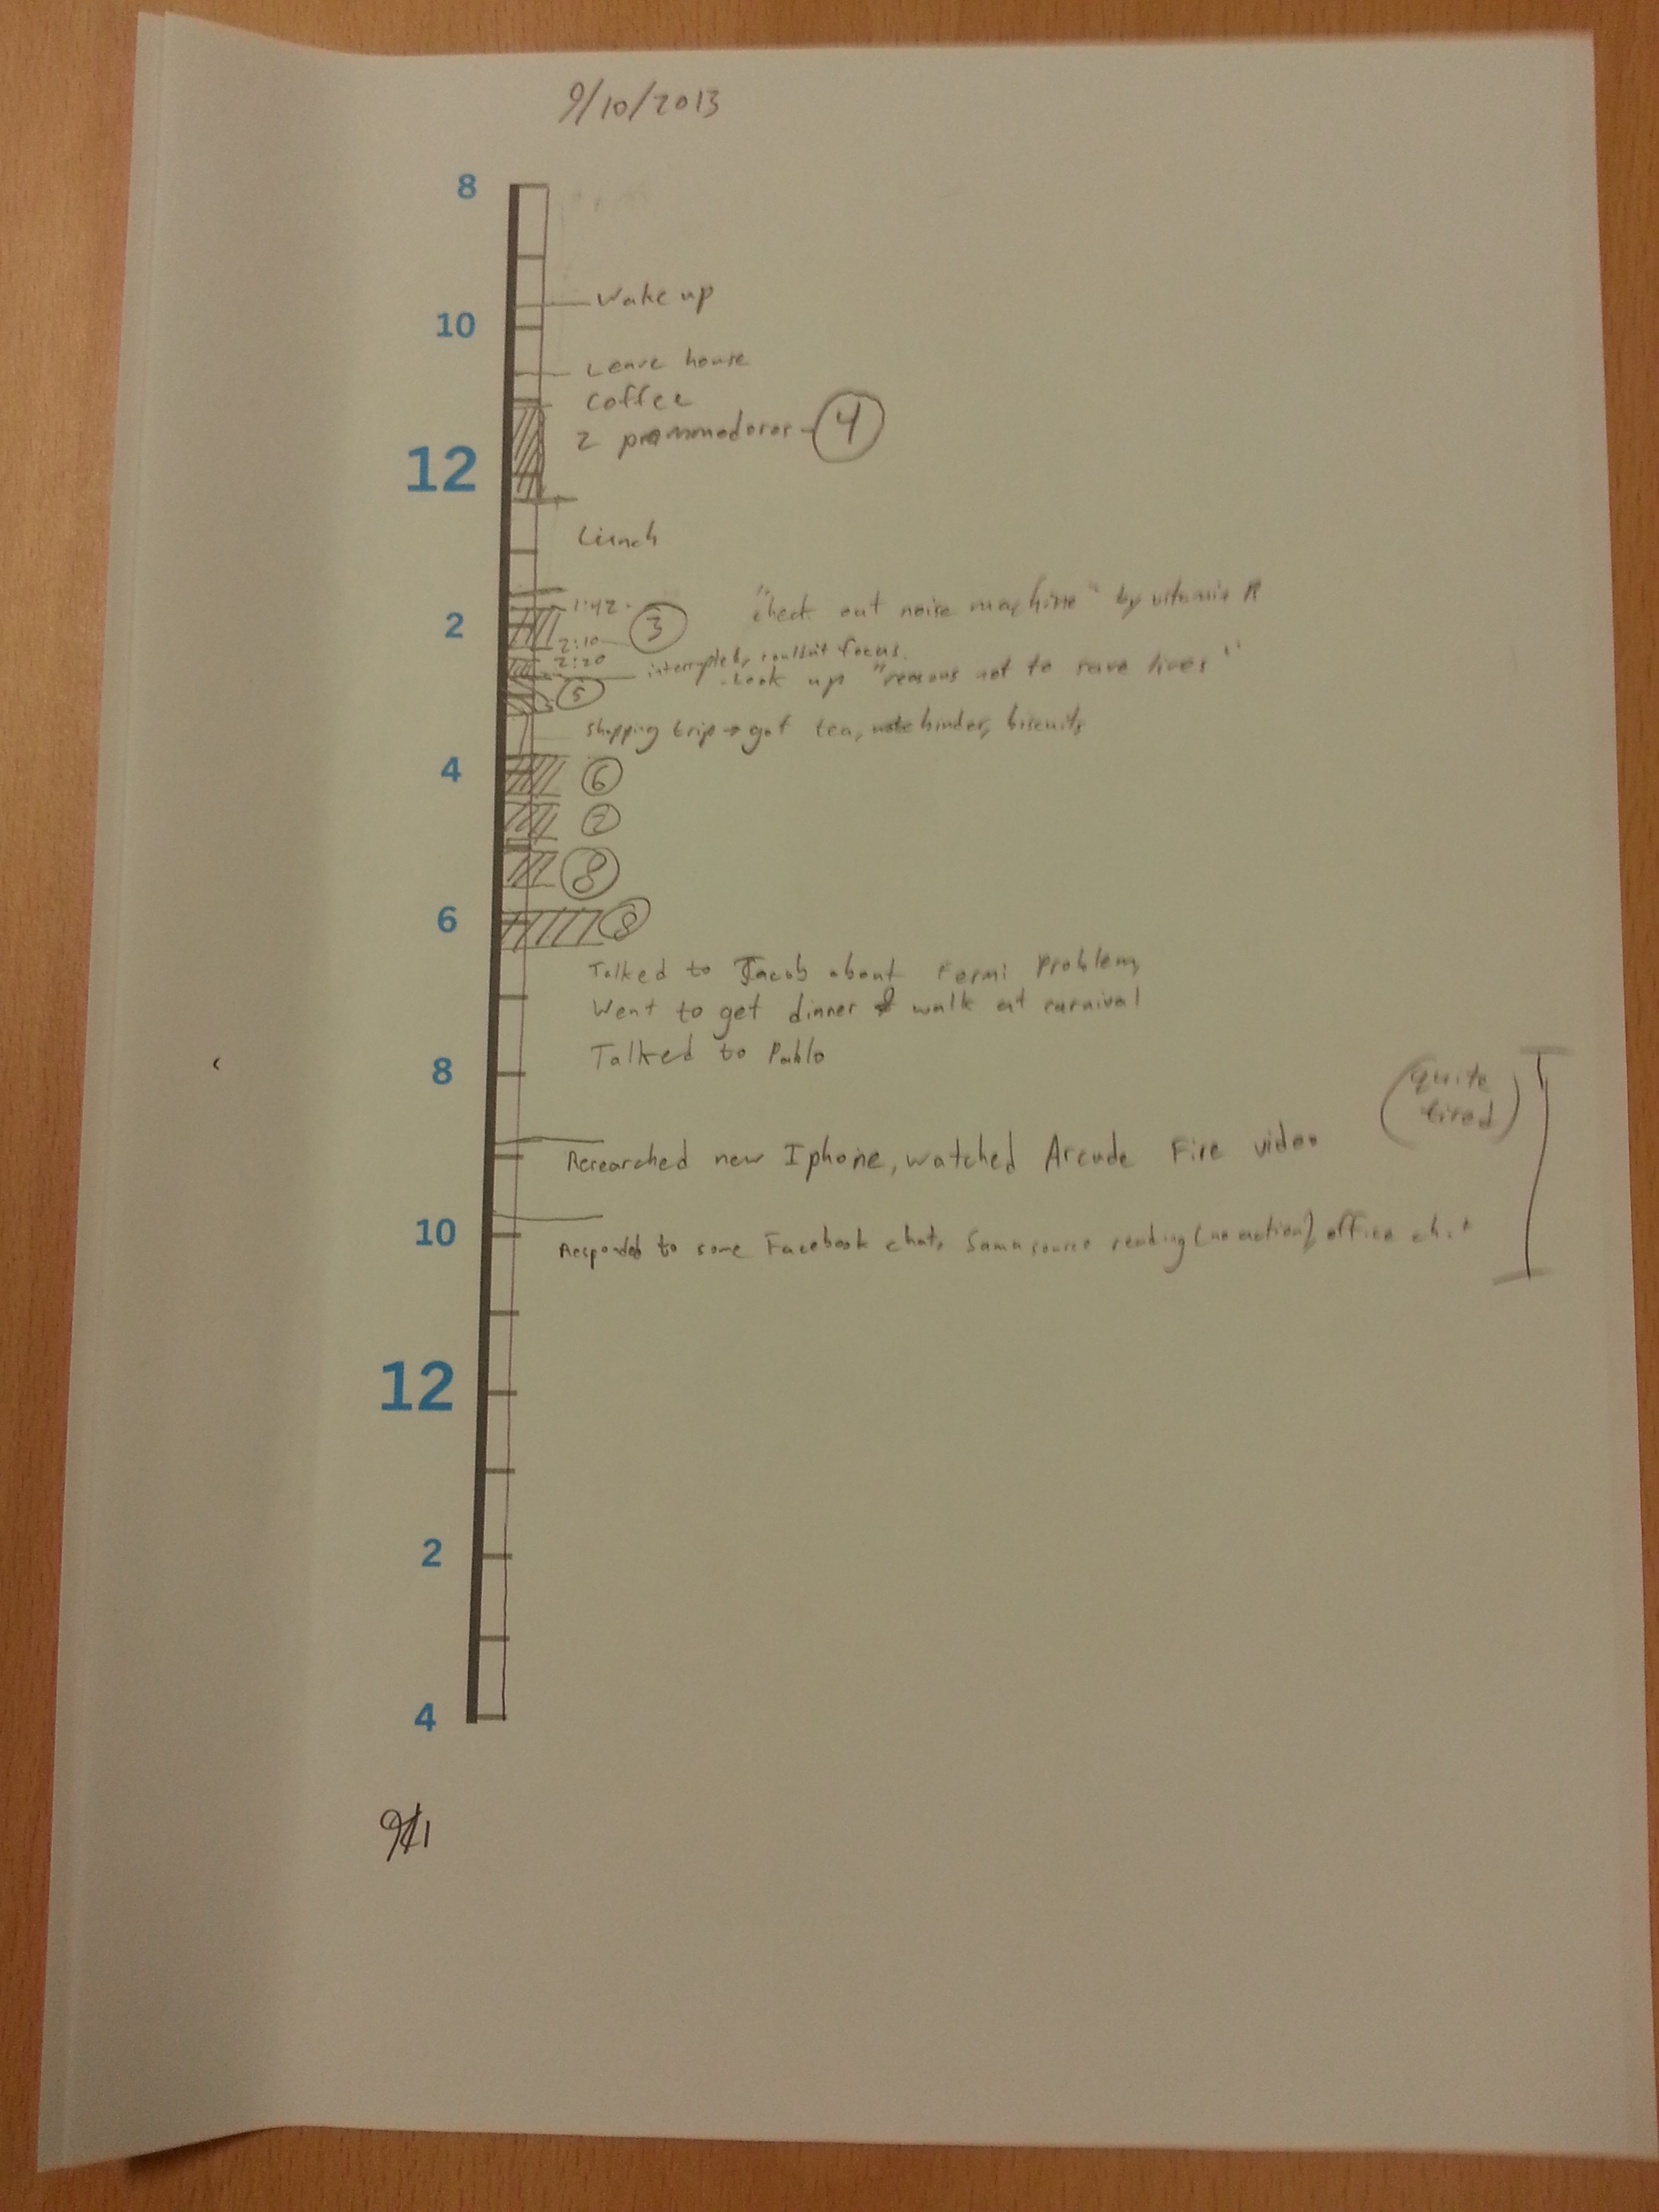 9/10/2013
8
Wake up
10
Leave house
Coffee
2 pommodoros - 4
12
Lunch
1:42
"check out noise machine" by vitamin R
2
3
2:10
2:20
interrupted, couldn't focus.
Look up "reasons not to save lives"
5
shopping trip → got tea, binder, biscuits
4
6
7
8
6
8
Talked to Jacob about Fermi problem,
Went to get dinner & walk at carnival
Talked to Pablo
8
(quite
tired)
Researched new Iphone, watched Arcade Fire video
10
Responded to some Facebook chats, Samasource reading (no action) office chat
12
2
4